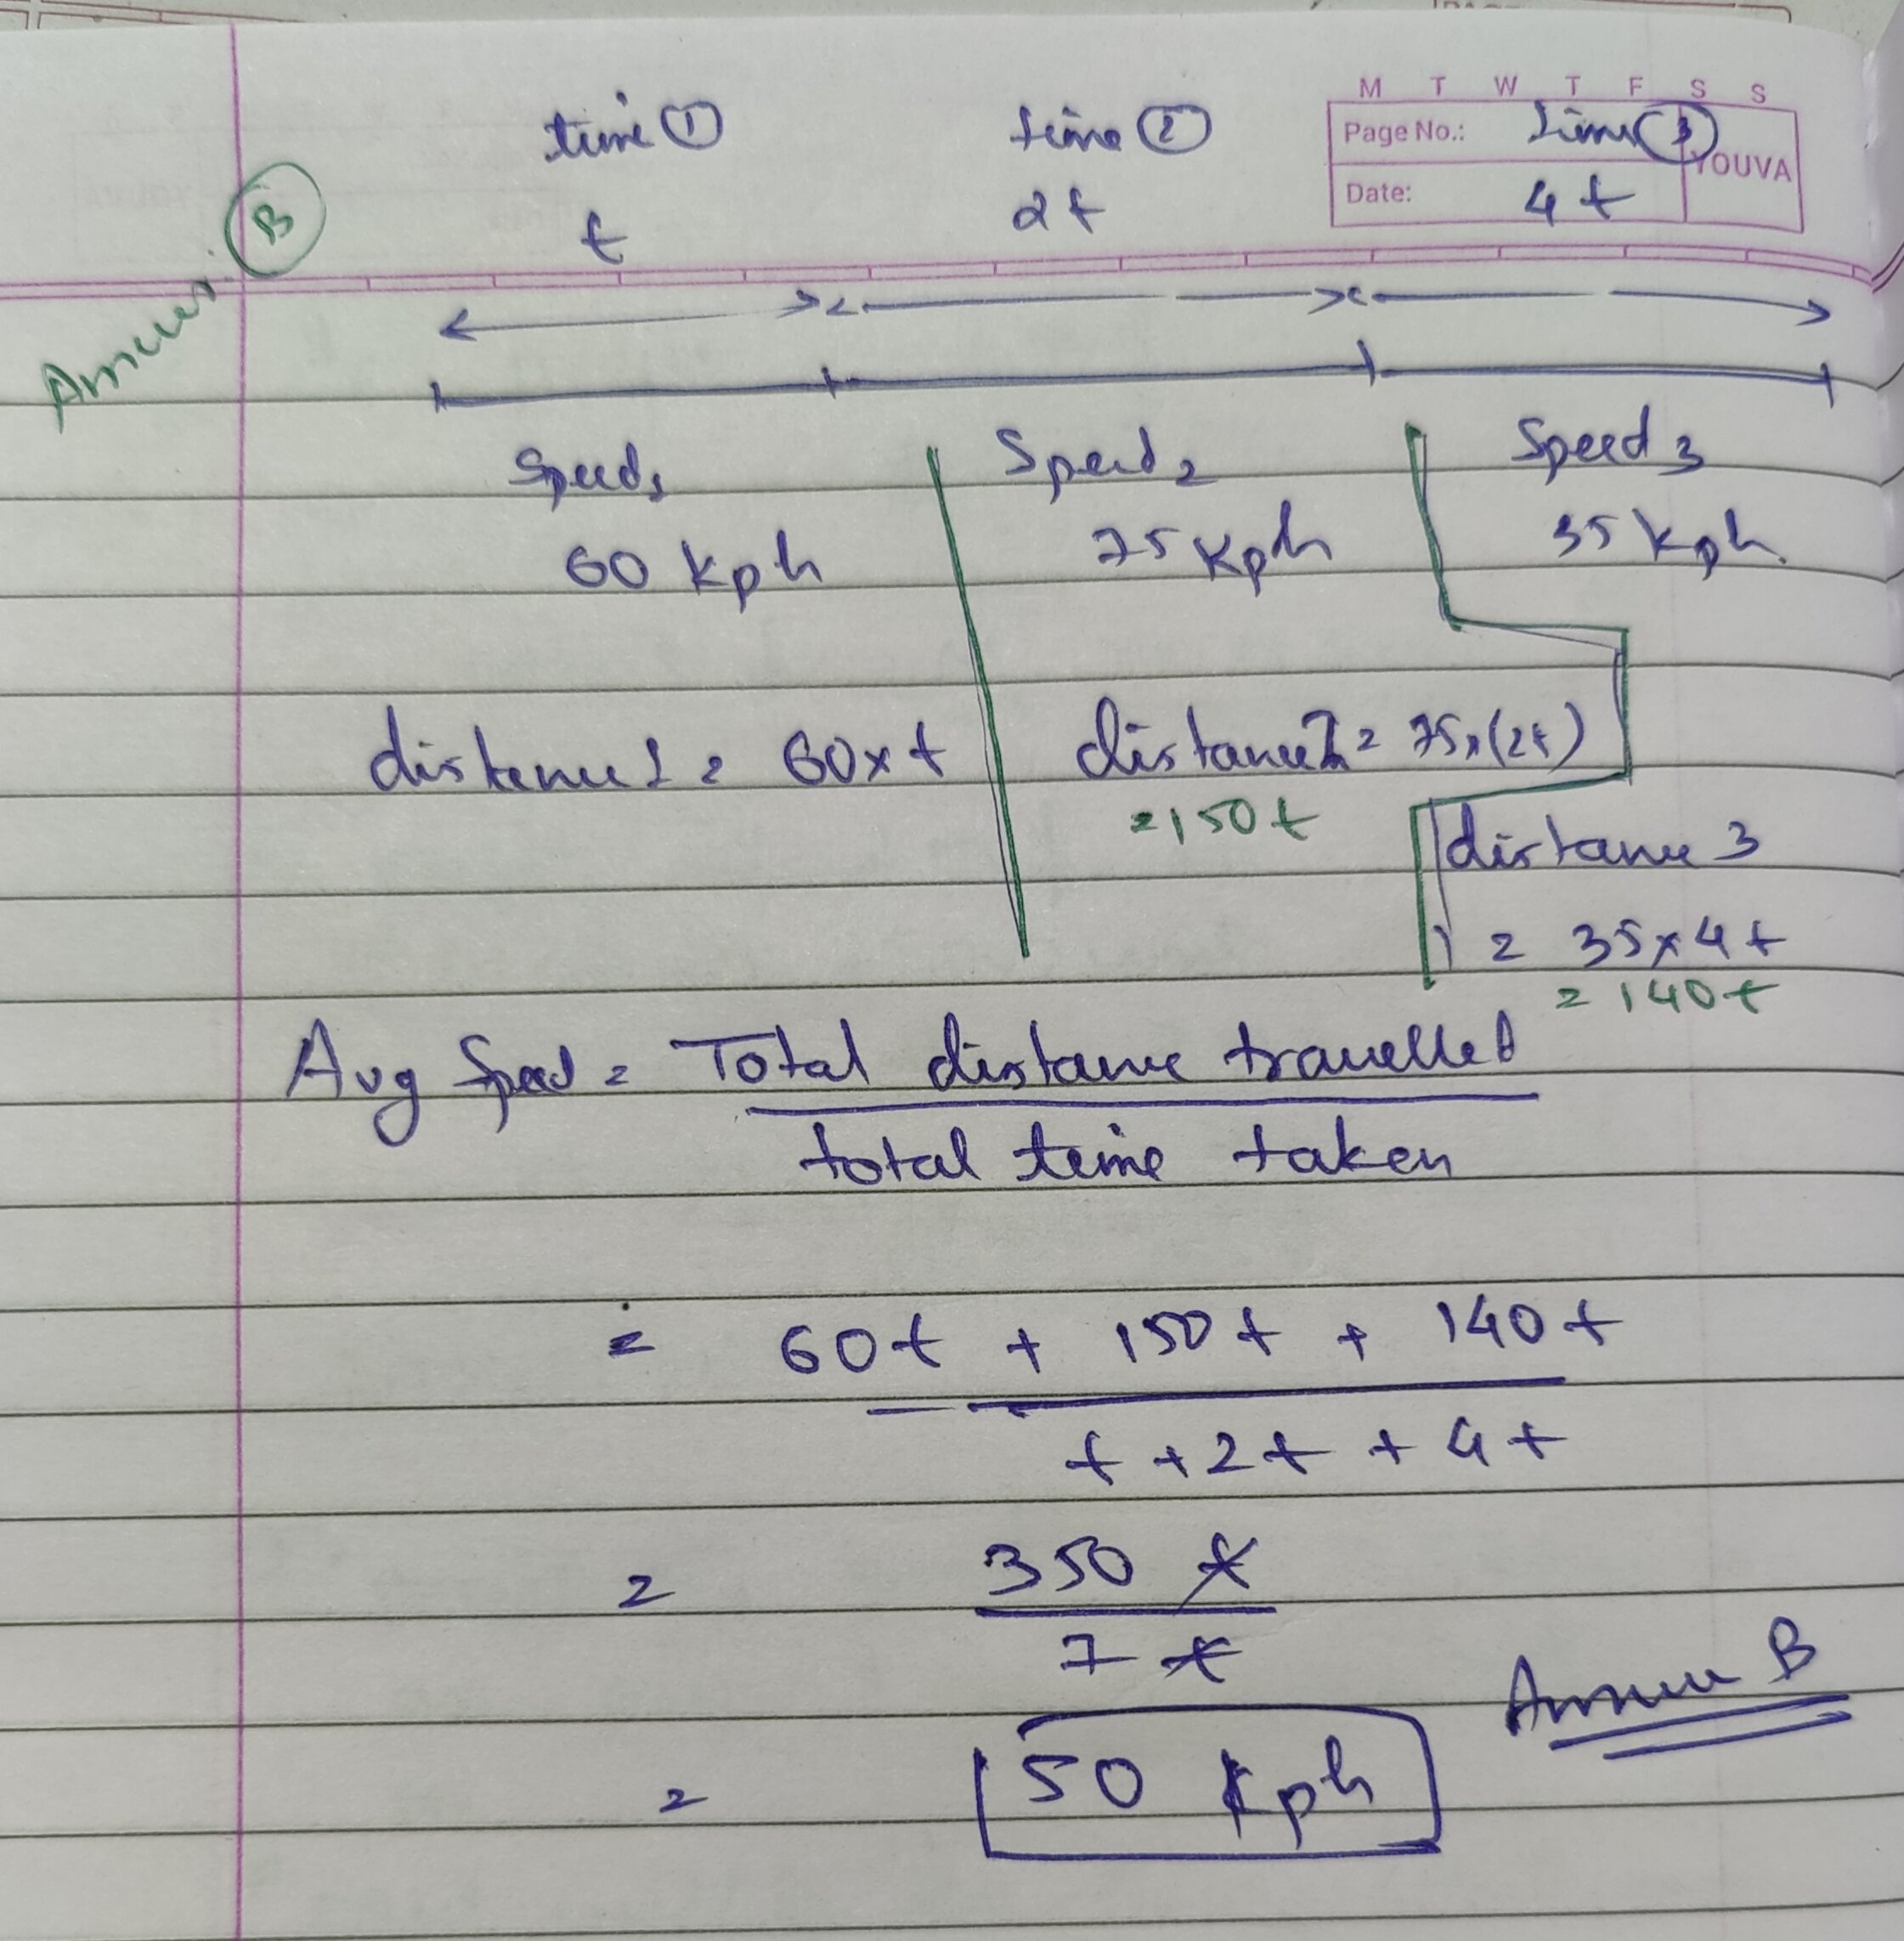 M T W T F S S
Page No.:
YOUVA
Date:
time ① time ② time ③
t 2t 4t
Answer B
Speed1 Speed2 Speed 3
60 kph 75 kph 35 kph.
distance 1 = 60 × t distance 2 = 75 × (2t)
= 150t
distance 3
= 35 × 4t
= 140t
Avg Speed = Total distance travelled
total time taken
= 60t + 150t + 140t
t + 2t + 4t
= 350 t
7 t
Answer B
= 50 kph